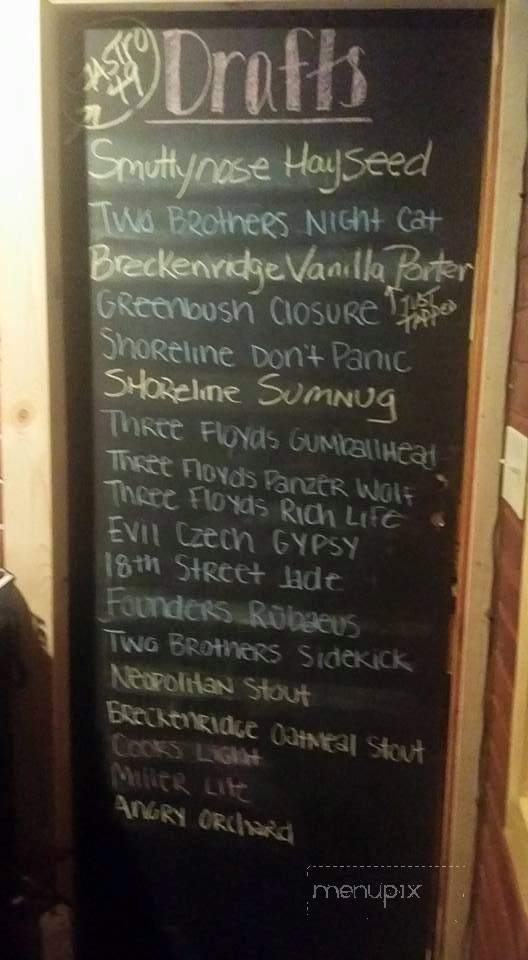 GASTRO 49
Drafts
Smuttynose Hayseed
Two Brothers Night Cat
Breckenridge Vanilla Porter
Greenbush Closure
JUST TAPPED
Shoreline Don't Panic
Shoreline Sumnug
Three Floyds Gumballhead
Three Floyds Panzer Wolf
Three Floyds Rich Life
Evil Czech Gypsy
18th Street Jade
Founders Rübaeus
Two Brothers Sidekick
Neopolitan Stout
Breckenridge Oatmeal Stout
Coors Light
Miller Lite
Angry Orchard
menupix